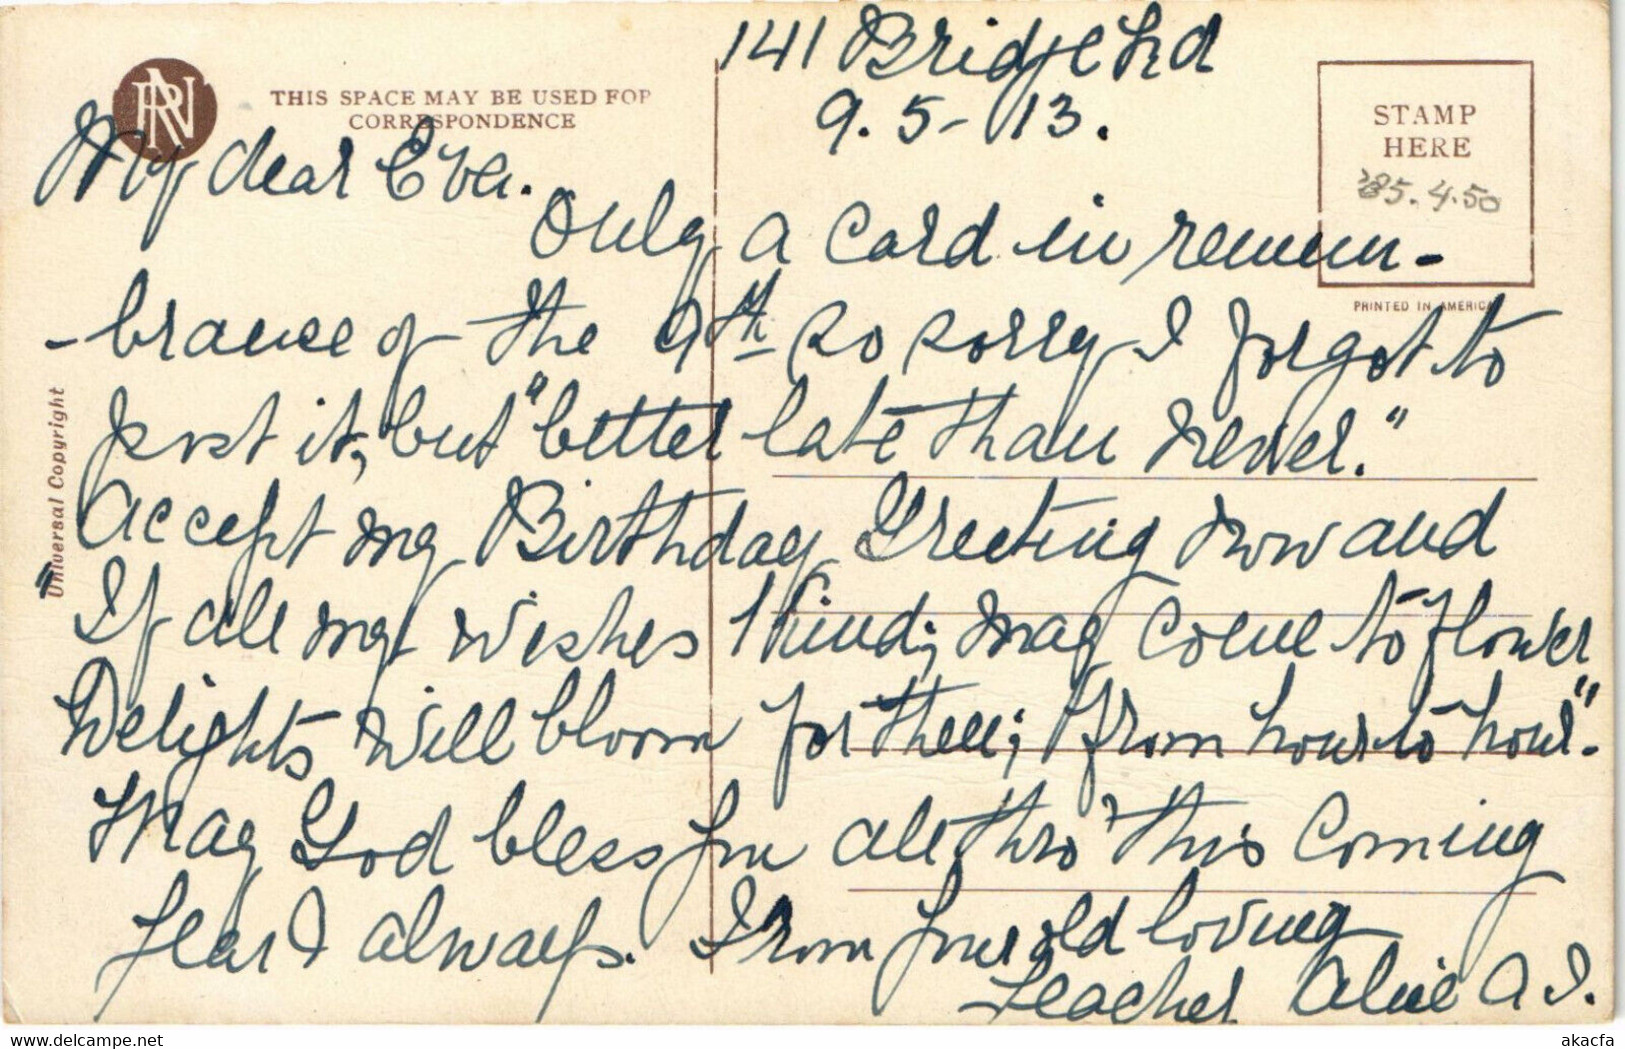 141 Bridge Rd
9.5-13.
RN
THIS SPACE MAY BE USED FOR
CORRESPONDENCE
STAMP
HERE
4.50
PRINTED IN AMERICA
Universal Copyright
My dear Eva.
Only a card in remem-
-brance of the 9th so sorry I forgot to
post it, but "better late than never."
Accept my Birthday Greeting now and
"If all my wishes kind; may come to flower
Delights will bloom for thee; from hour to hour".
May God bless you all thro' this coming
year & always. From your old loving
Teacher Alice A I.
akacfa